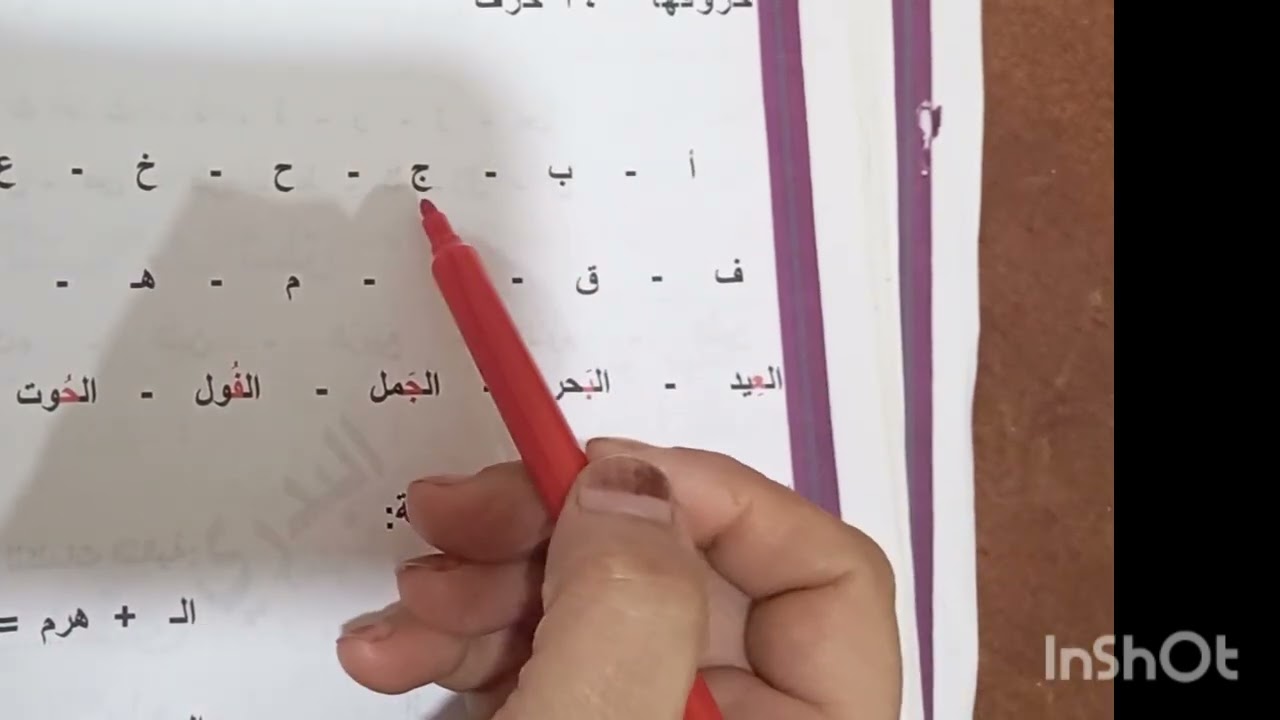 أ - ب - ج - ح - خ - ع
ف - ق - - م - هـ -
العِيد - البَحر - الجَمل - الفُول - الحُوت
الـ + هرم =
InShOt